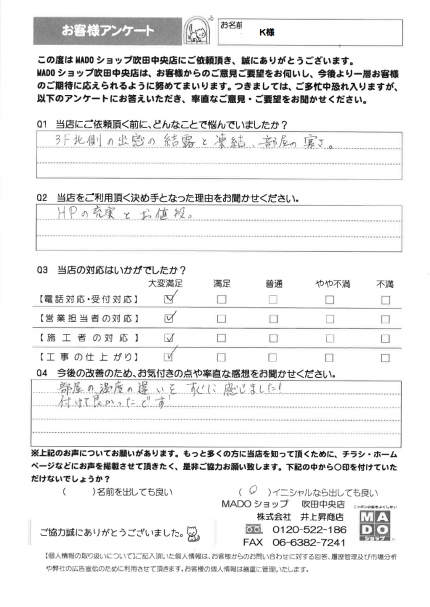 お客様アンケート
お名前
K様
この度はMADOショップ吹田中央店にご依頼頂き、誠にありがとうございます。
MADOショップ吹田中央店は、お客様からのご意見ご要望をお伺いし、今後より一層お客様
のご期待に応えられるように努めてまいります。つきましては、ご多忙中恐れ入りますが、
以下のアンケートにお答えいただき、率直なご意見・ご要望をお聞かせください。
Q1 当店にご依頼頂く前に、どんなことで悩んでいましたか？
3F北側の出窓の結露と凍結、部屋の寒さ。
Q2 当店をご利用頂く決め手となった理由をお聞かせください。
HPの充実とお値段。
Q3 当店の対応はいかがでしたか？
大変満足 満足 普通 やや不満 不満
【電話対応・受付対応】 ☑ □ □ □ □
【営業担当者の対応】 ☑ □ □ □ □
【施工者の対応】 ☑ □ □ □ □
【工事の仕上がり】 ☑ □ □ □ □
Q4 今後の改善のため、お気付きの点や率直な感想をお聞かせください。
部屋の温度の違いをすぐに感じました!
付けて良かったです!
※上記のお声についてお願いがあります。もっと多くの方に当店を知って頂くために、チラシ・ホーム
ページなどにお声を掲載させて頂きたく、是非ご協力お願い致します。下記の中から〇印を付けていた
だけないでしょうか？
( )名前を出しても良い (〇)イニシャルなら出しても良い
MADOショップ 吹田中央店
株式会社 井上昇商店
0120-522-186
FAX 06-6382-7241
ご協力誠にありがとうございました。
MADO
ショップ
【個人情報の取り扱いについて】ご記入頂いた個人情報は、お客様からのお問い合わせに対する回答、履歴管理及び市場分析
や弊社の広告宣伝のために利用させて頂きます。お客様の個人情報は厳重に管理いたします。